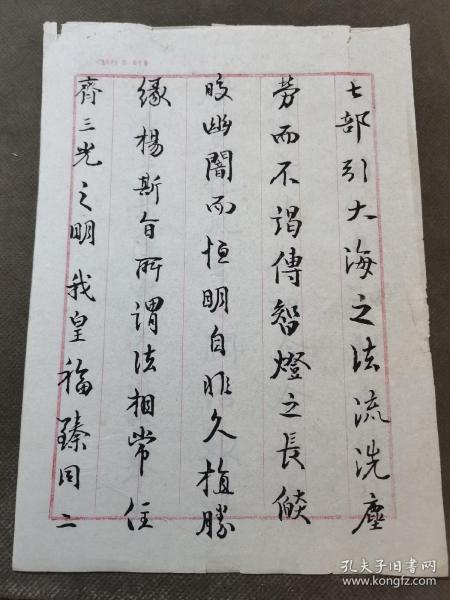 七部引大海之法流洗塵
劳而不竭傳智燈之長燄
皎幽闇而恒明自非久植勝
緣楊斯旨所謂法相常住
齊三光之明我皇福臻同二
孔夫子旧书网
www.kongfz.com